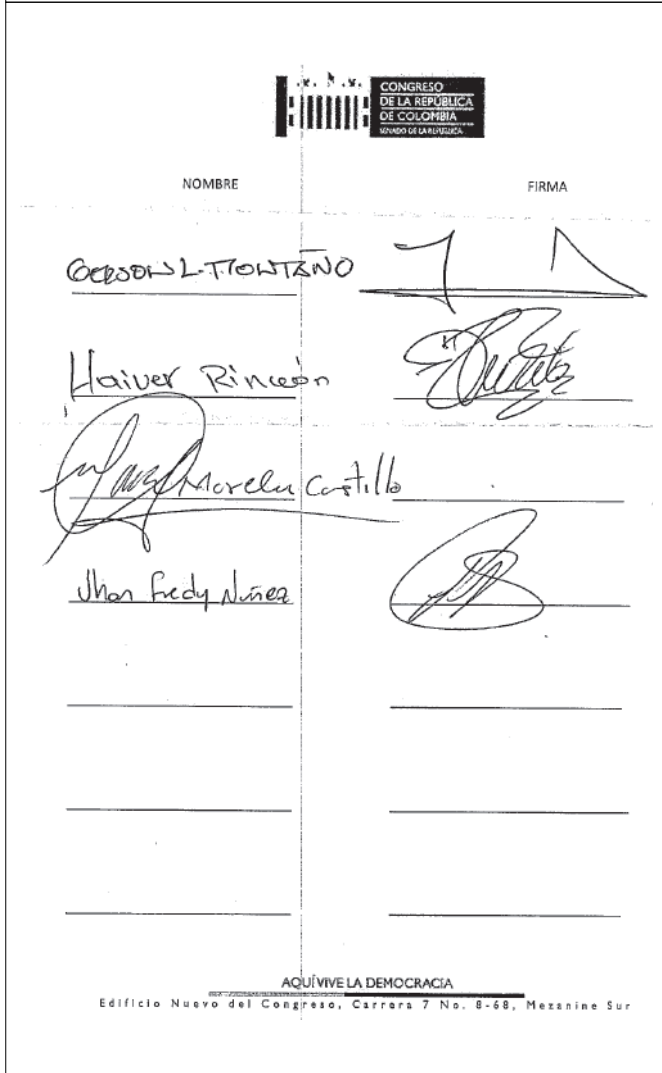 CONGRESO
DE LA REPÚBLICA
DE COLOMBIA
SENADO DE LA REPÚBLICA
NOMBRE FIRMA
GERSON L. MONTAÑO
Haiver Rincón
Marelen Castillo
Jhon Fredy Nuñez
AQUÍ VIVE LA DEMOCRACIA
Edificio Nuevo del Congreso, Carrera 7 No. 8-68, Mezanine Sur